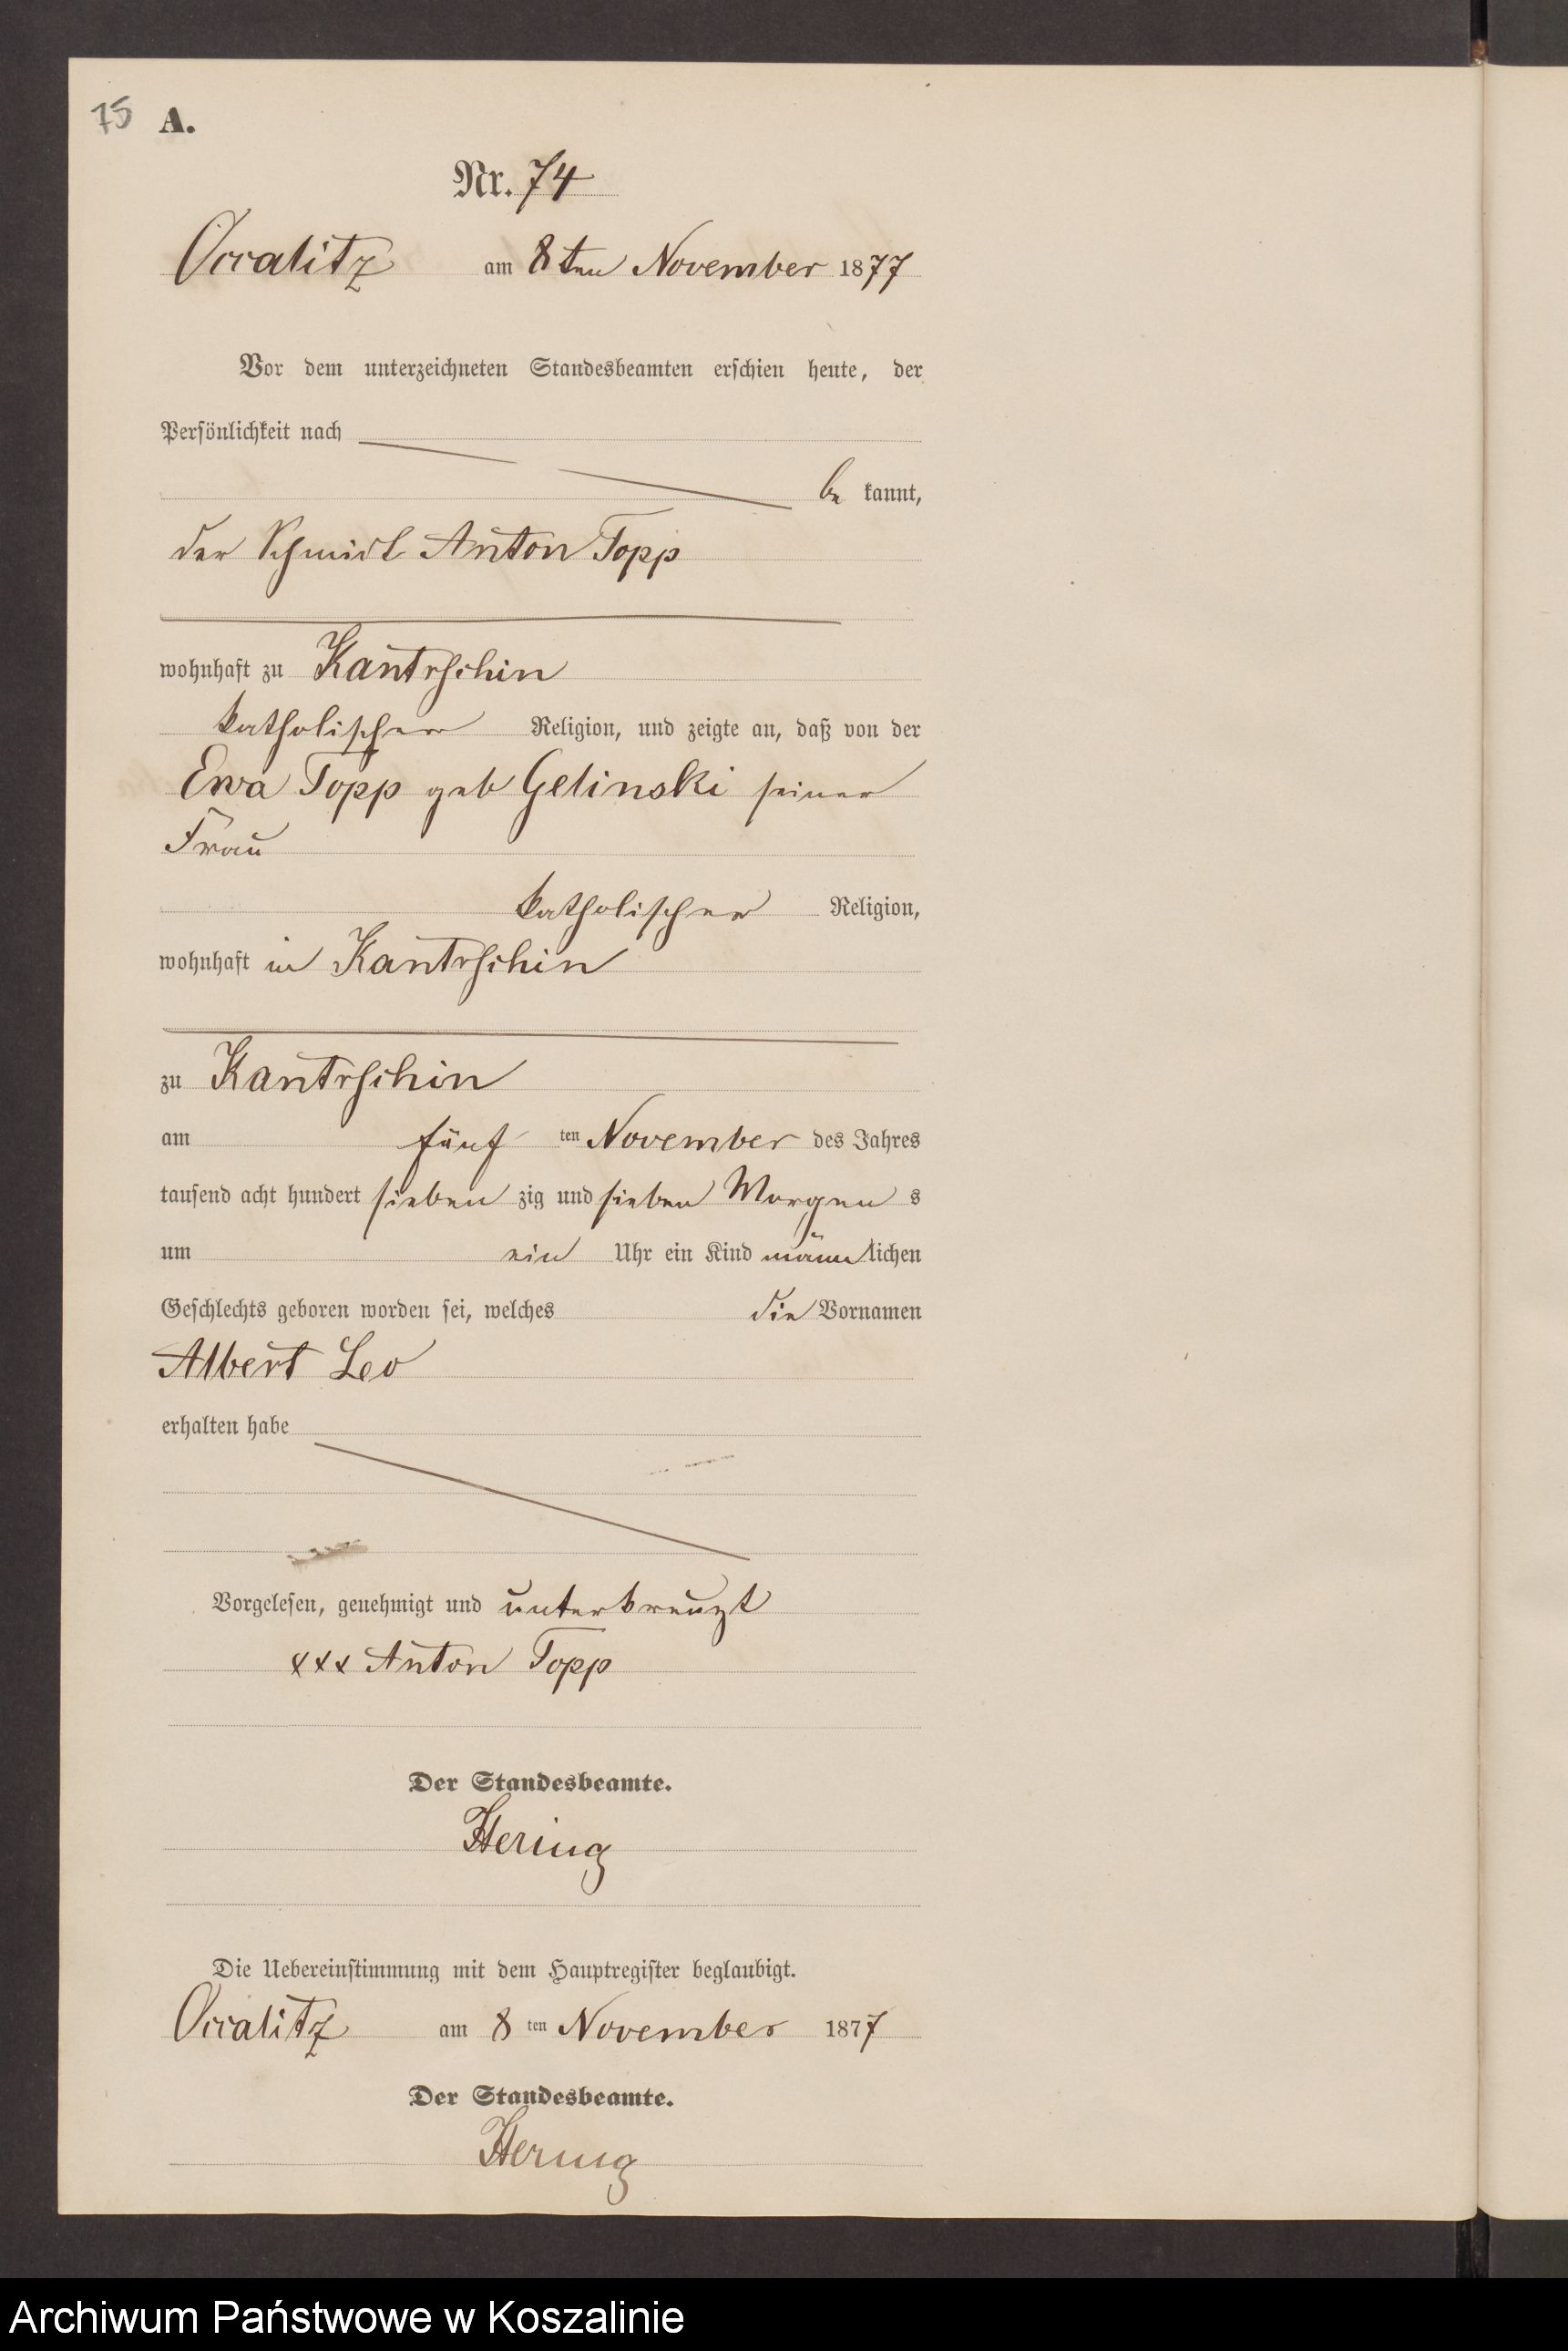 75 A.
Nr. 74
Occalitz am 8ten November 1877
Vor dem unterzeichneten Standesbeamten erschien heute, der
Persönlichkeit nach
be kannt,
der Schmidt Anton Topp
wohnhaft zu Kantrschin
katholischer Religion, und zeigte an, daß von der
Ewa Topp geb Gelinski seiner
Frau
katholischer Religion,
wohnhaft in Kantrschin
zu Kantrschin
am fünf ten November des Jahres
tausend acht hundert sieben zig und sieben Morgen s
um ein Uhr ein Kind männ lichen
Geschlechts geboren worden sei, welches die Vornamen
Albert Leo
erhalten habe
Vorgelesen, genehmigt und unterkreuzt
xxx Anton Topp
Der Standesbeamte.
Hering
Die Uebereinstimmung mit dem Hauptregister beglaubigt.
Occalitz am 8 ten November 1877
Der Standesbeamte.
Hering
Archiwum Państwowe w Koszalinie